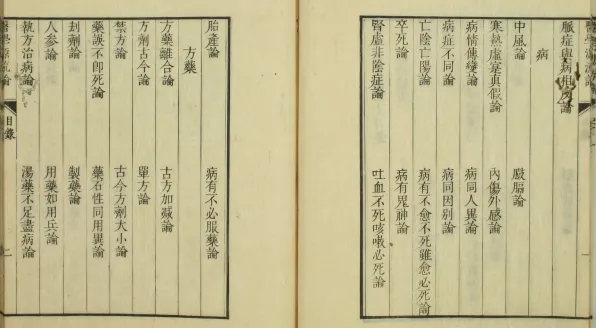 脈症與病相反論
病
中風論 臌膈論
寒熱虛實真假論 內傷外感論
病情傳變論 病同人異論
病症不同論 病同因別論
亡陰亡陽論 病有不愈不死雖愈必死論
卒死論 病有鬼神論
腎虛非陰症論 吐血不死咳嗽必死論
胎產論 病有不必服藥論
方藥
方藥離合論 古方加減論
方劑古今論 單方論
禁方論 古今方劑大小論
藥誤不卽死論 藥石性同用異論
刦劑論 製藥論
人參論 用藥如用兵論
執方治病論 湯藥不足盡病論
目錄 二